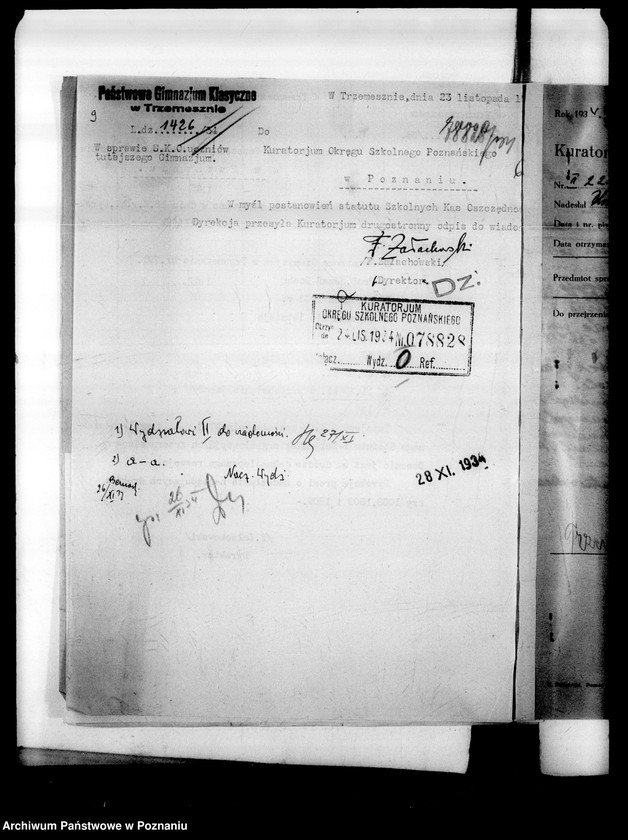 Państwowe Gimnazjum Klasyczne
w Trzemesznie
W Trzemesznie, dnia 23 listopada 1
9
L.dz. 1426 /34
Do
W sprawie S.K.O. uczniów
tutejszego Gimnazjum.
Kuratorjum Okręgu Szkolnego Poznańskiego
w Poznaniu.
W myśl postanowień statutu Szkolnych Kas Oszczędno
Dyrekcja przesyła Kuratorjum drugostronny odpis do wiado
F. Załachowski
/F. Załachowski/
Dyrektor
DZ.
KURATORJUM
OKRĘGU SZKOLNEGO POZNAŃSKIEGO
Otrzym.
dn 24 LIS. 1934 № 078828
Załącz. Wydz. O Ref.
1) Wydziałowi II do wiadomości. 27/XI.
2) a-a.
Nacz. Wydz.
28 XI. 1934
26/XI
26/XI 34
Rok 193
Kurator
Nr. II 22
Nadesłał
Data i nr. pis
Data otrzyma
Przedmiot spr
Do przejrzeni
Archiwum Państwowe w Poznaniu